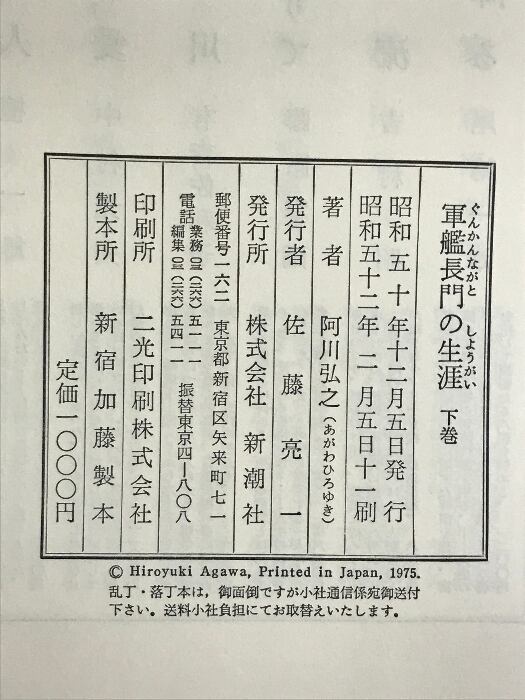 軍艦長門の生涯 下巻
ぐんかんながと しようがい
昭和五十年十二月五日発行
昭和五十二年二月五日十一刷
著者 阿川弘之(あがわひろゆき)
発行者 佐藤亮一
発行所 株式会社 新潮社
郵便番号一六二 東京都新宿区矢来町七一
電話 業務〇三(二六六)五一一一
編集〇三(二六六)五四一一
振替東京四―八〇八
印刷所 二光印刷株式会社
製本所 新宿加藤製本
定価一〇〇〇円
© Hiroyuki Agawa, Printed in Japan, 1975.
乱丁・落丁本は,御面倒ですが小社通信係宛御送付
下さい。送料小社負担にてお取替えいたします。